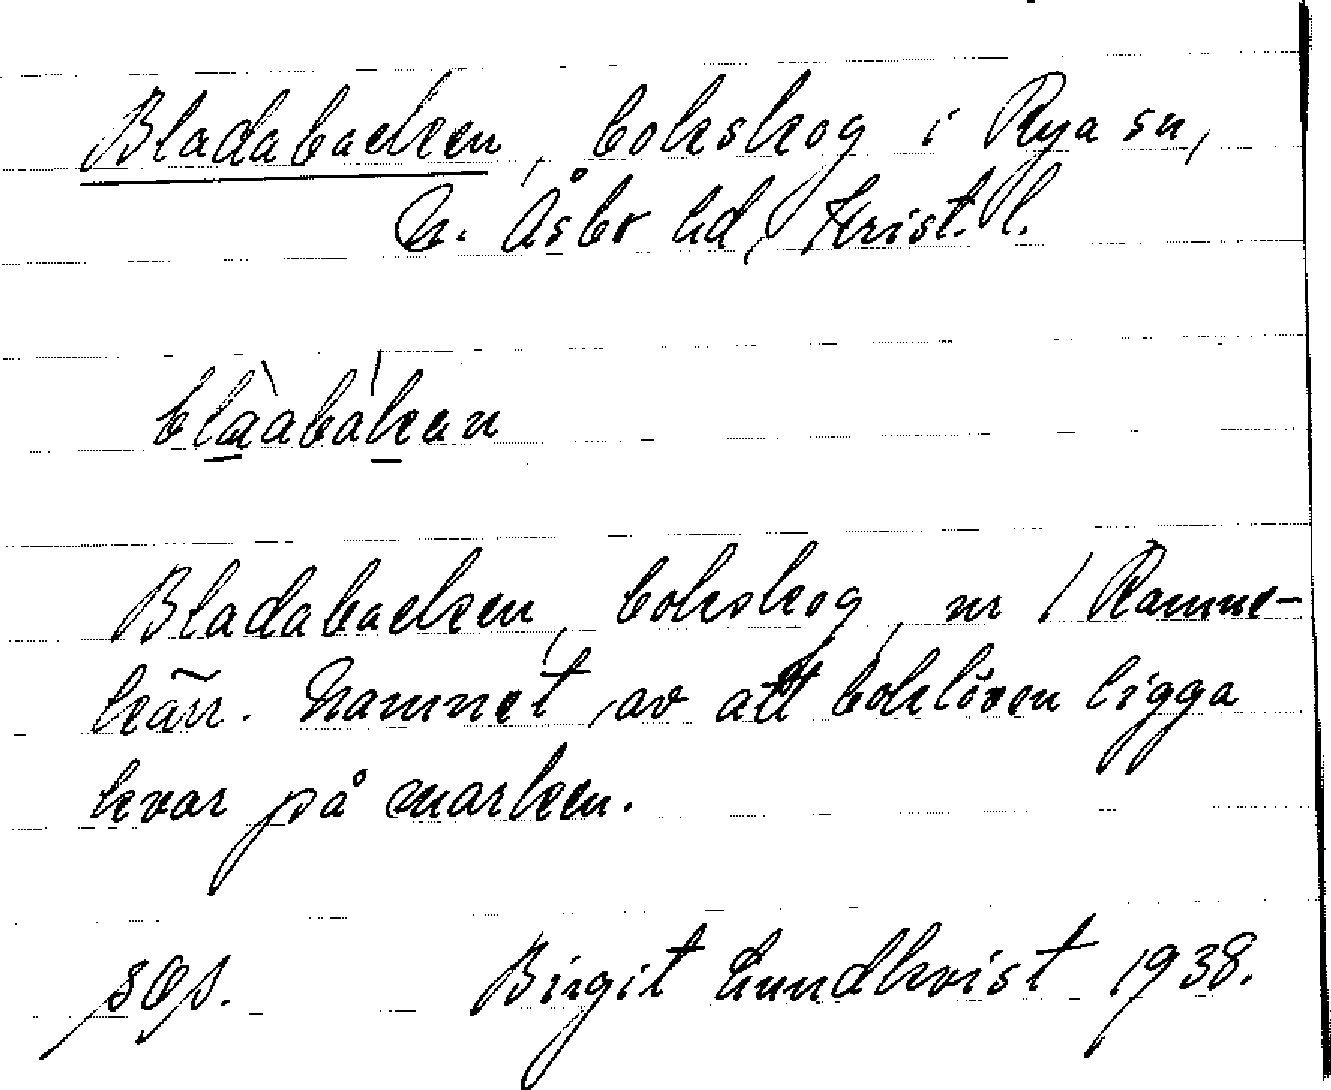 Bladabacken, bokskog i Rya sn,
N. Åsbo hd, Krist. l.
blàabákan
Bladabacken, bokskog, nr 1 Ramne-
kärr. Namnet av att boklöven ligga
kvar på marken.
sOs. Birgit Lundkvist 1938.